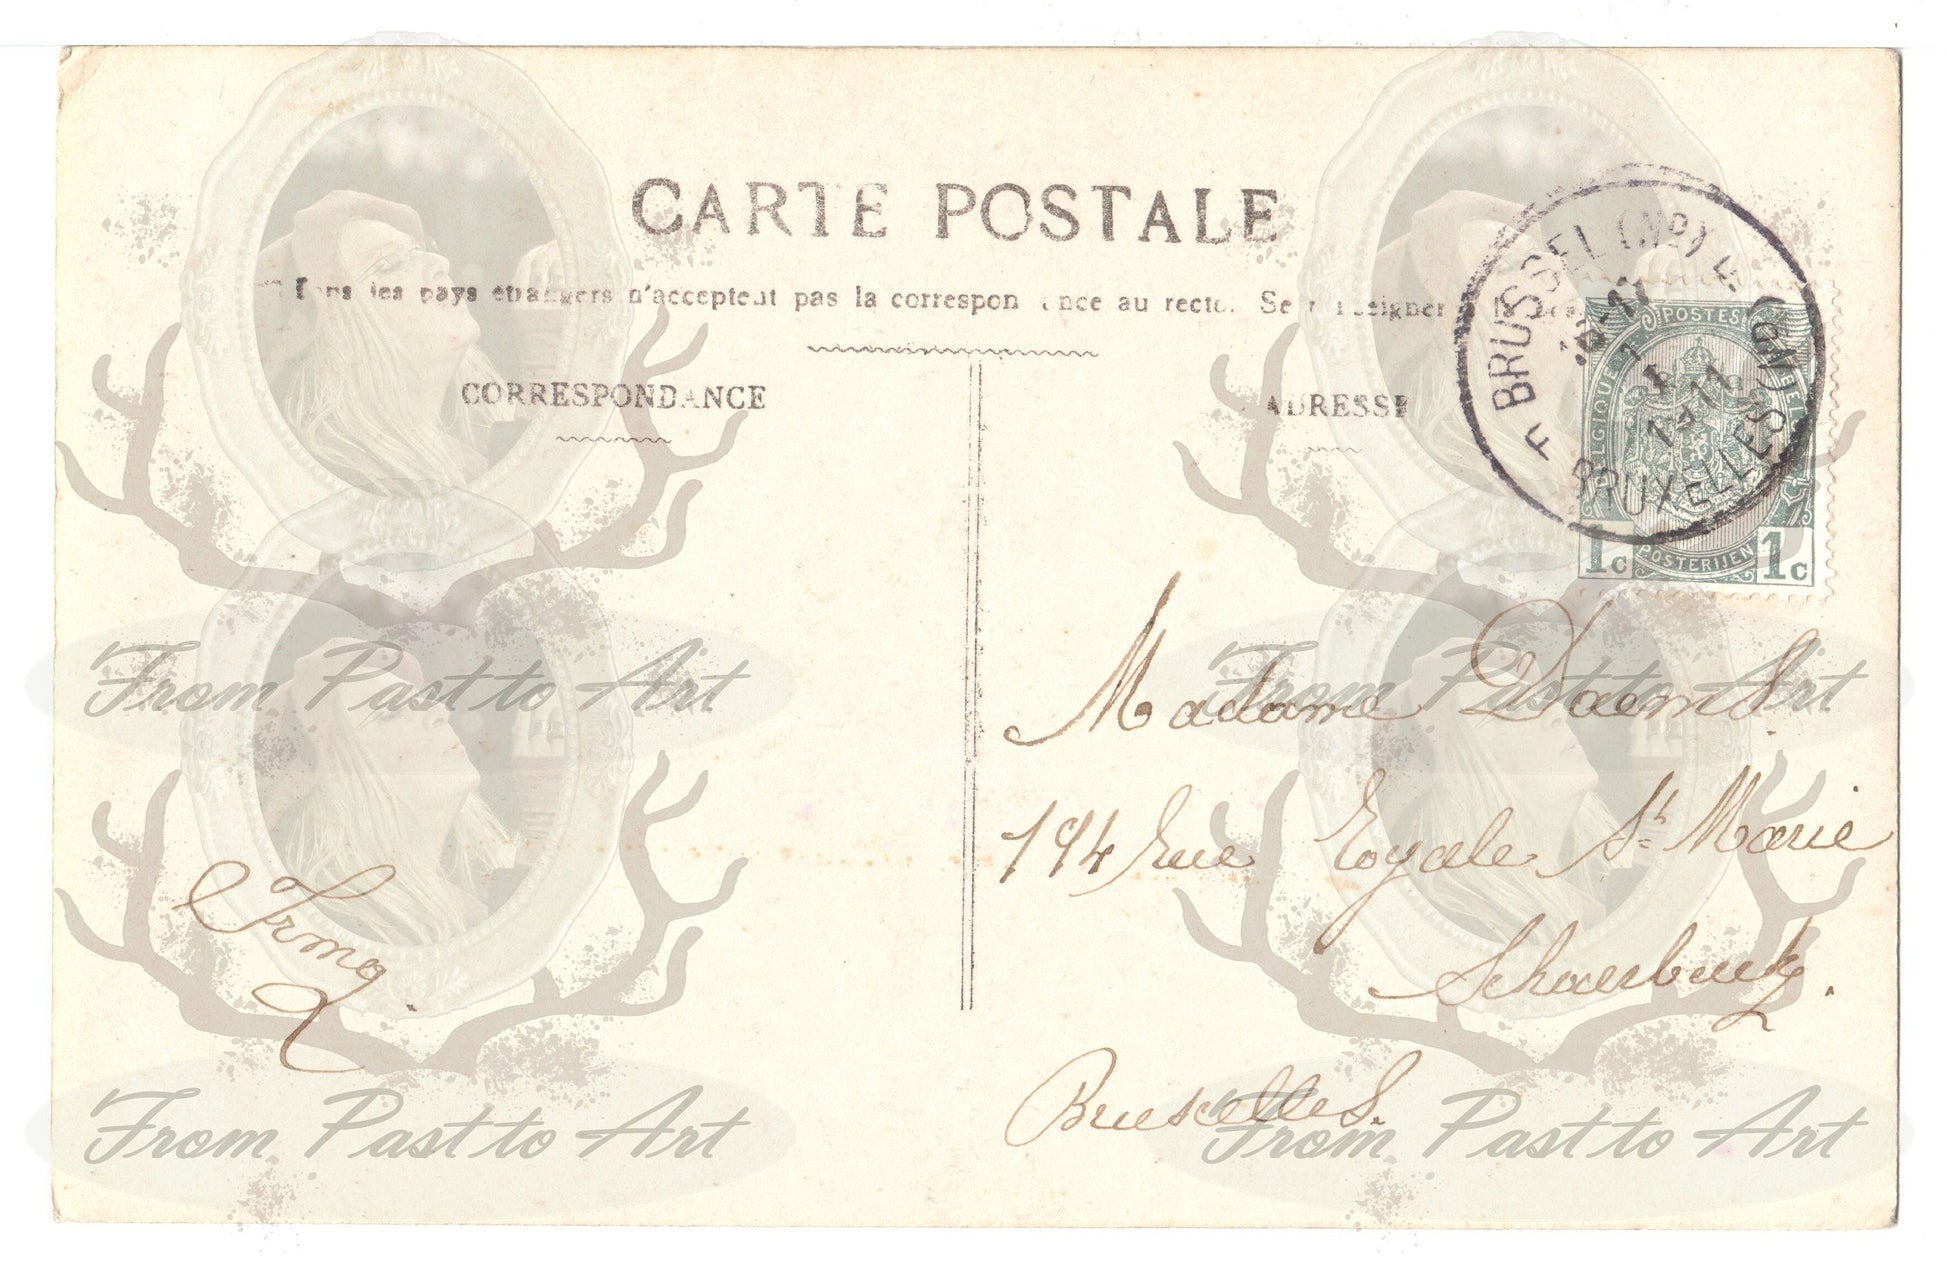 CARTE POSTALE
les pays étrangers n'acceptent pas la correspondance au recto.
CORRESPONDANCE
ADRESSE
BRUSSEL (ND)
BRUXELLES (ND)
POSTES
BELGIQUE
1c POSTERIJEN 1c
Madame Daems.
194 Rue Royale St Marie
Schaerbeek.
Bruxelles.
Irma
From Past to Art
From Past to Art
From Past to Art
From Past to Art